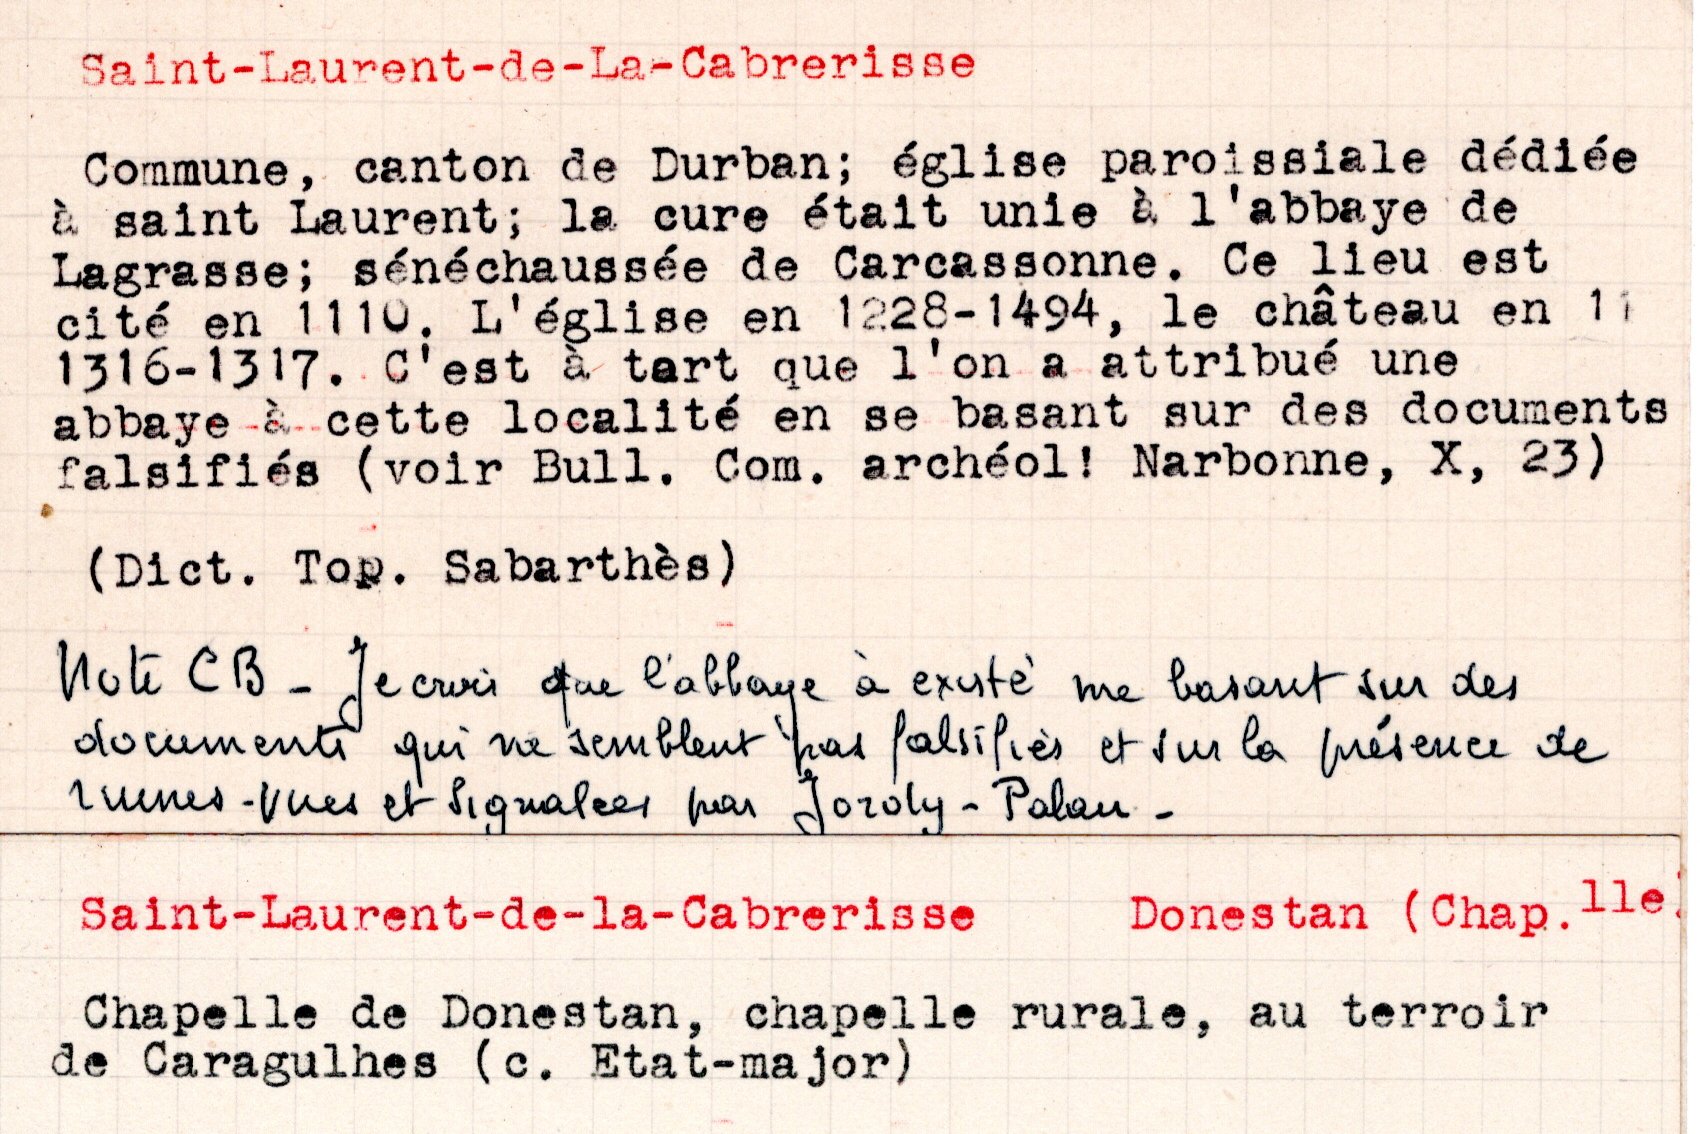 Saint-Laurent-de-La-Cabrerisse
Commune, canton de Durban; église paroissiale dédiée
à saint Laurent; la cure était unie à l'abbaye de
Lagrasse; sénéchaussée de Carcassonne. Ce lieu est
cité en 1110. L'église en 1228-1494, le château en 11
1316-1317. C'est à tart que l'on a attribué une
abbaye à cette localité en se basant sur des documents
falsifiés (voir Bull. Com. archéol! Narbonne, X, 23)
(Dict. Top. Sabarthès)
Note CB - Je crois que l'abbaye à existé me basant sur des
documents qui ne semblent pas falsifiés et sur la présence de
ruines - vues et signalées par - Palau -
Saint-Laurent-de-la-Cabrerisse Donestan (Chap.lle)
Chapelle de Donestan, chapelle rurale, au terroir
de Caragulhes (c. Etat-major)